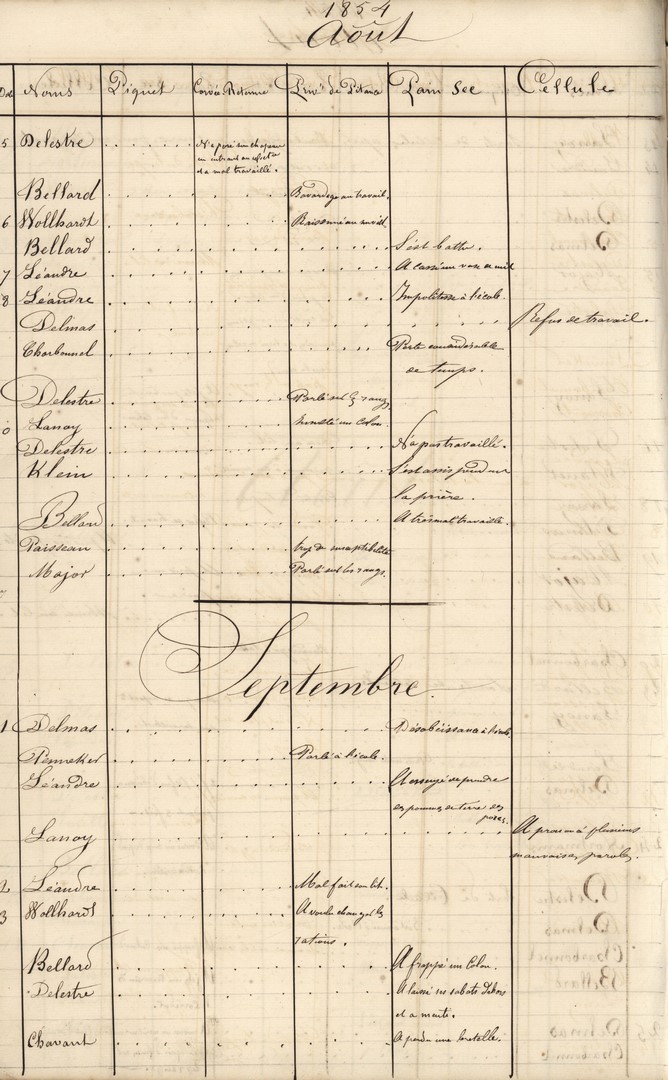 1854
Août
Noms Piquet Corvée Retenue Privé de Pitance Pain Sec Cellule
5 Delestre N'a posé son chapeau
en entrant au
et a mal travaillé.
Bellard Bavardage au travail.
6 Wollhardt Raisonné au
Bellard S'est battu.
7 Léandre A cassé un vase
8 Léandre Impolitesse à l'école.
Delmas Refus de travail.
Charbonnel Perte considérable
de temps.
Delestre Parlé sur les rangs
0 Lanoy Insulté un Colon.
Delestre N'a pas travaillé.
Klein S'est assis pendant
la prière.
Bellard A très mal travaillé.
Paisseau trop de susceptibilité
Major Parlé sur les rangs.
Septembre
1 Delmas Désobéissance à l'école.
Penneker Parlé à l'école.
Léandre A essayé de prendre
des pommes de terre des
Lanoy A prononcé plusieurs
mauvaises paroles.
2 Léandre Mal fait son lit.
3 Wollhardt A voulu changer les
rations.
Bellard A frappé un Colon.
Delestre A laissé ses sabots dehors
et a menti.
Chavant A perdu une bretelle.